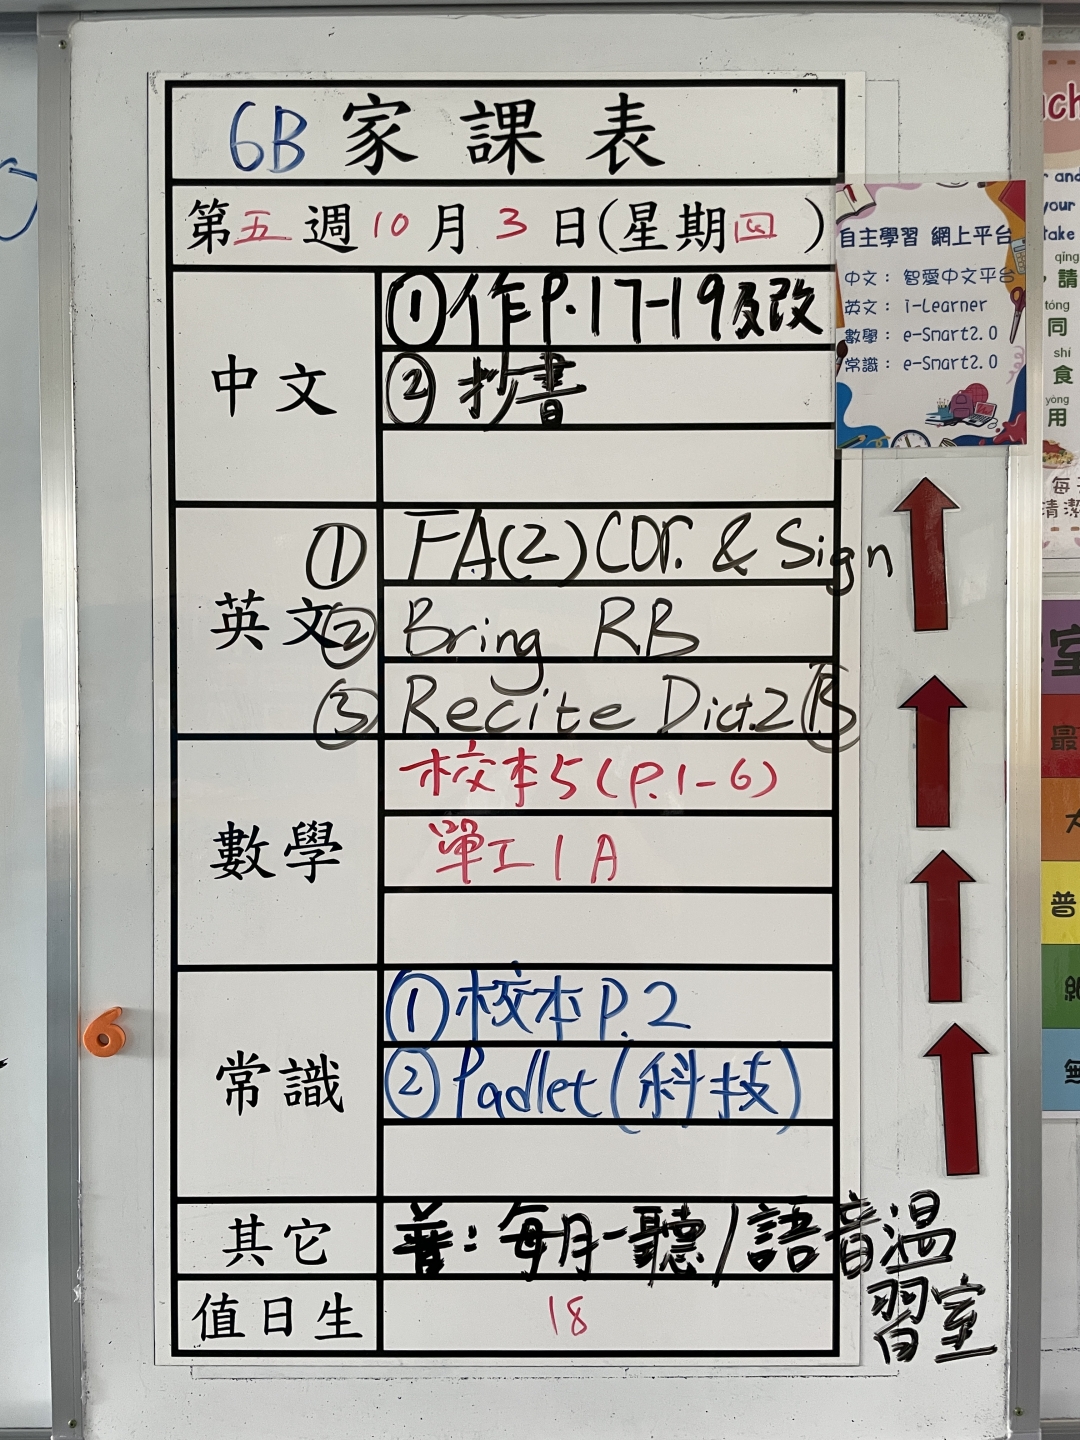 6B 家課表
第五週 10月 3日(星期四)
中文
①作P.17-19及改
②抄書
英文
① FA(2) Cor. & Sign
② Bring RB
③ Recite Dict.2 Ⓑ
數學
校本5(P.1-6)
單工1A
常識
①校本P.2
②Padlet(科技)
其它
普：每月一聽/語音溫
習室
值日生
18
自主學習 網上平台
中文：智愛中文平台
英文：i-Learner
數學：e-Smart2.0
常識：e-Smart2.0
6
ach
and
your
take
qǐng
請
tóng
同
shí
食
yòng
用
每
清潔
室
最
普